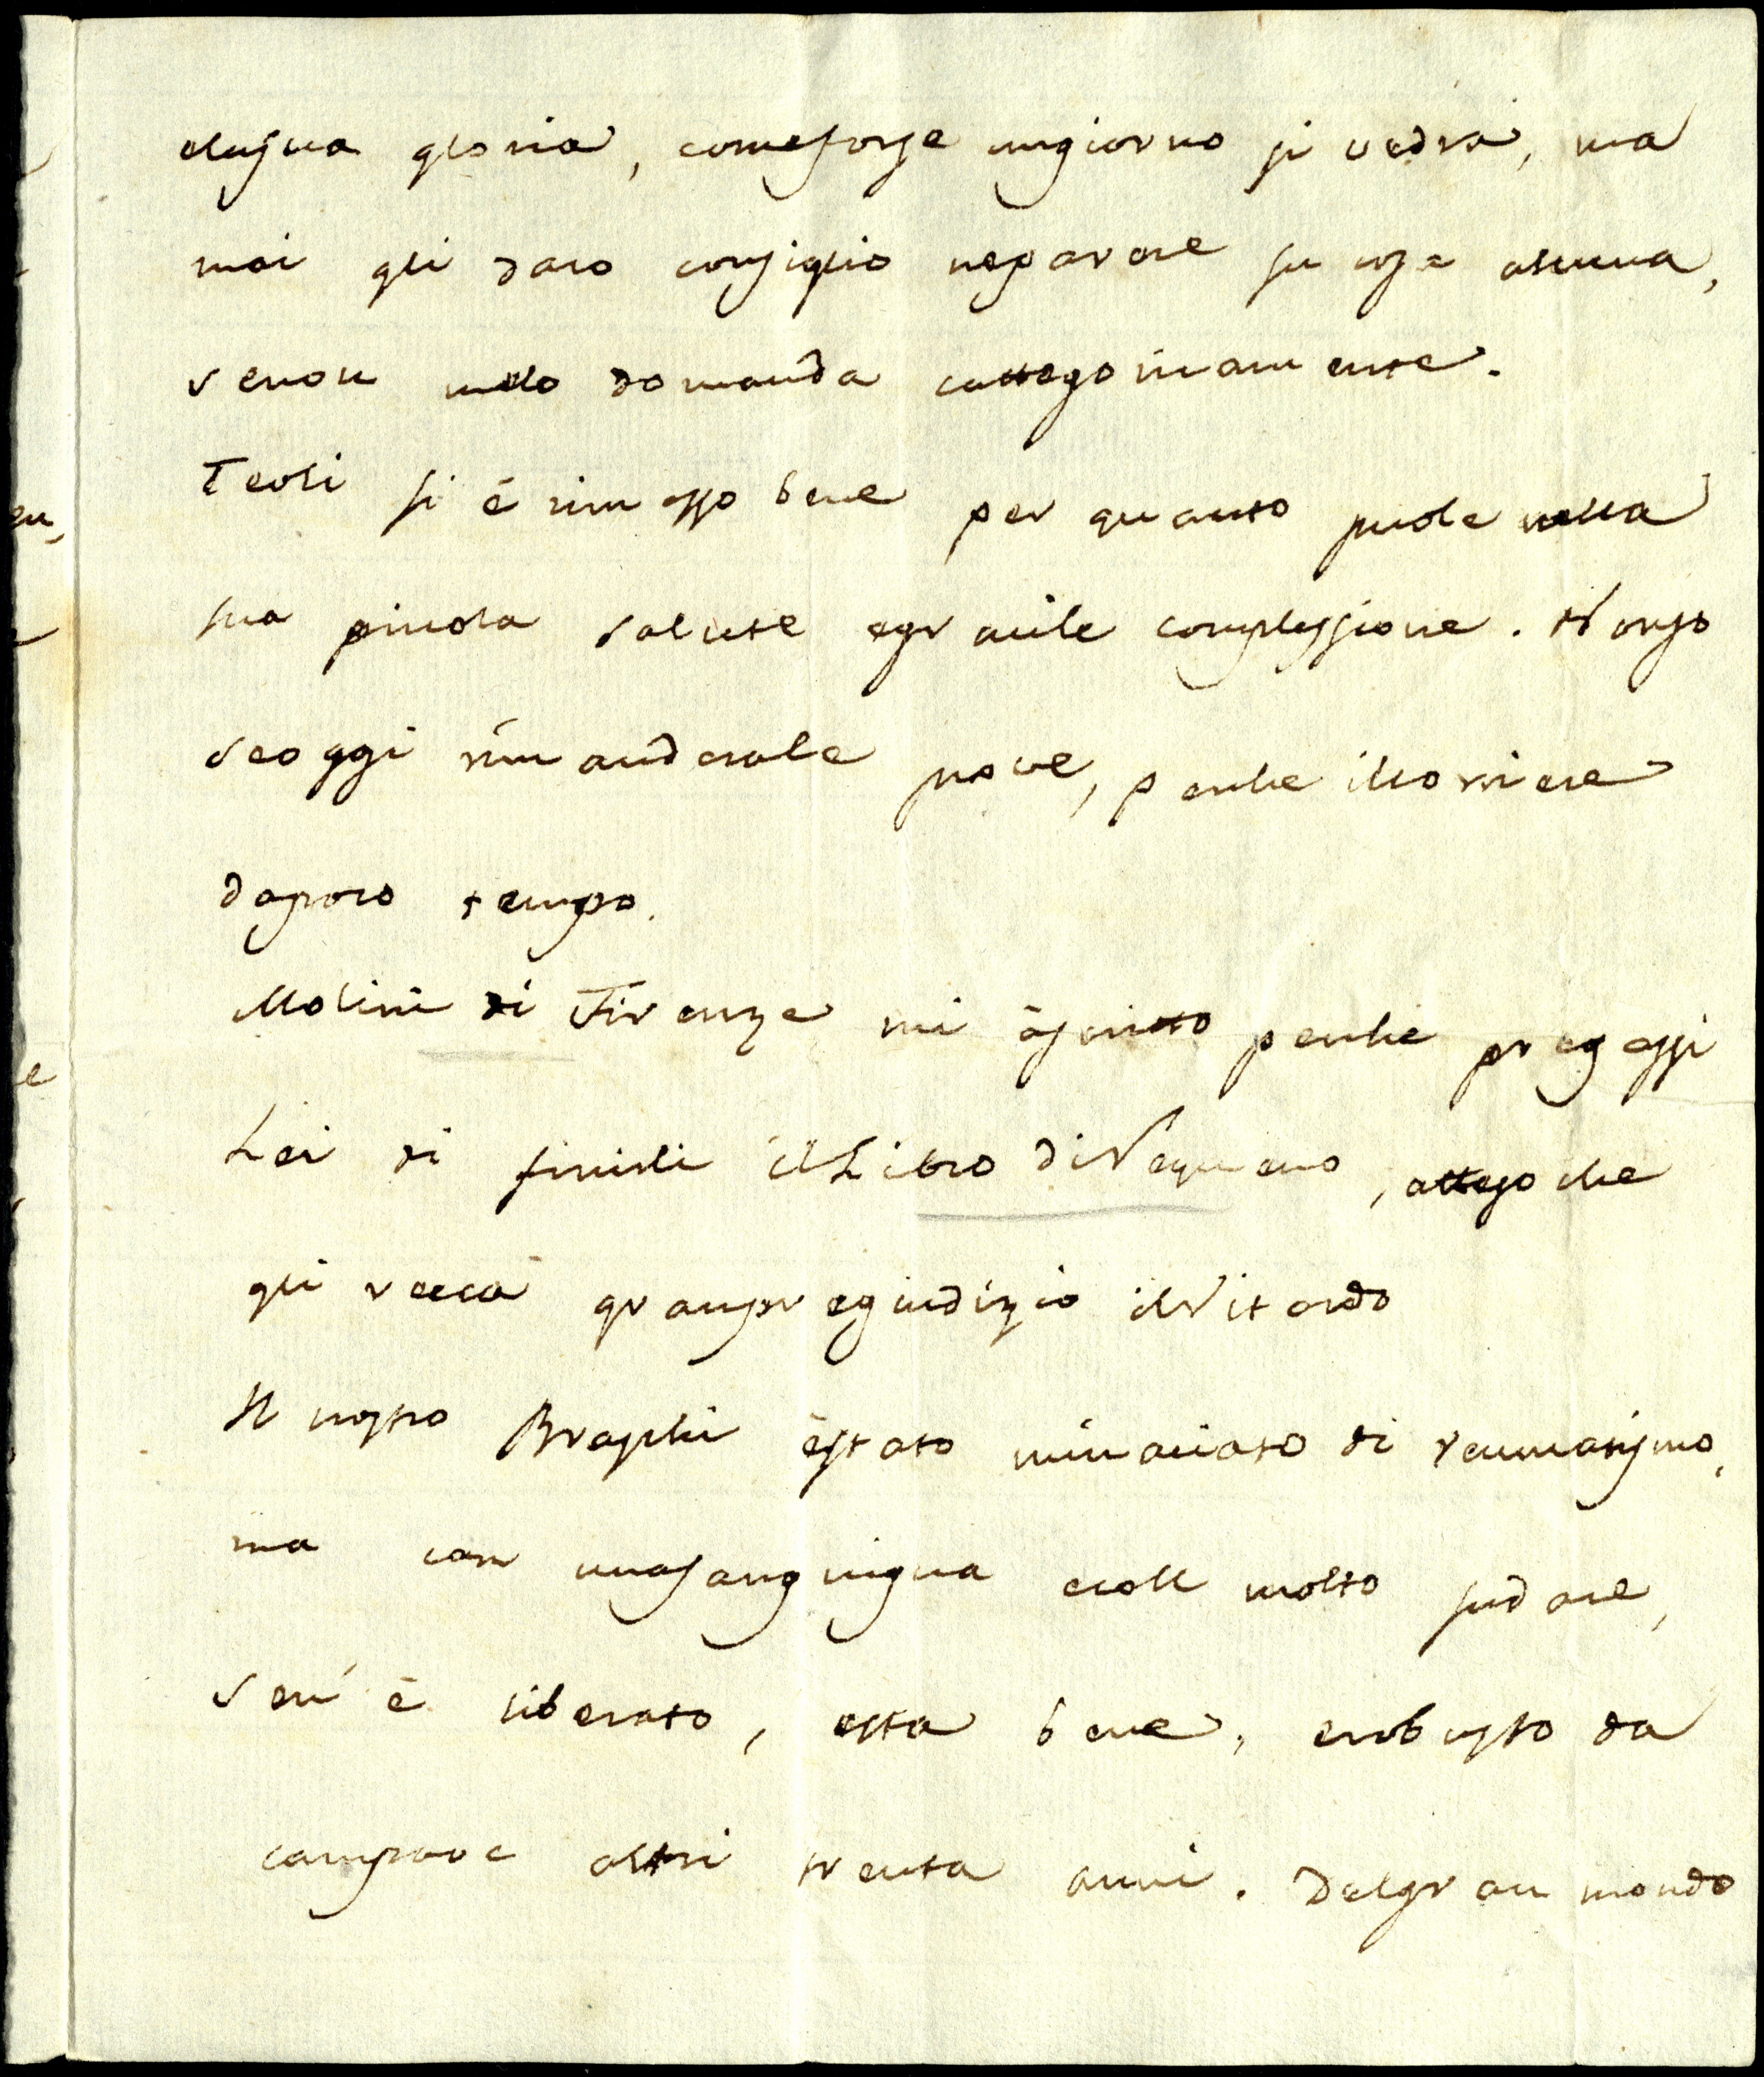 elasua gloria, comeforse ungiorno si vedrà, ma
mai gli daro consiglio neparere su cosa alcuna,
senon melo domanda cattegoricamente.
Teoli si é rimesso bene per quanto puole nella
sua piccola salute egracile complessione. Nonso
seoggi rimanderale prove, perche ilCorriere
dapoco tempo.
Molini di Firenze mi áscritto perche pregassi
Lei di finirli ilLibro di, atteso che
gli recca granpregiudizio ilRitardo
Il nostro Braschi éstato minaciato di reumatismo,
ma con unasanguigna ecoll molto sudare,
sen'é liberato, esta bene, erobusto da
campare altri trenta anni. Delgran mondo
en,
e